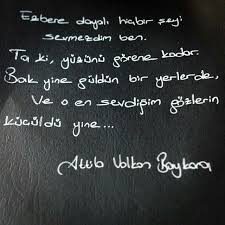 Ezbere dayalı hiçbir şeyi
sevmezdim ben.
Ta ki, yüzünü görene kadar.
Bak yine güldün bir yerlerde,
Ve o en sevdiğim gözlerin
küçüldü yine...
Attila Volkan Baykara